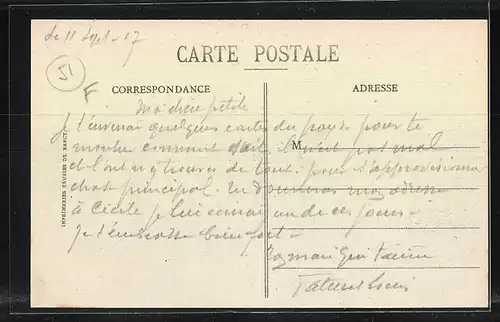 Le 11 Sept - 17
CARTE POSTALE
51
F
CORRESPONDANCE
ADRESSE
Ma chère petite
Je t'envoi quelques cartes du pays pour te
M
montrer comment il n'est pas mal
et l'on y trouve de tout pour s'approvisionner
principal. Tu donneras mon adresse
à Cécile je lui un de ces jours -
Je t'embrasse bien fort -
qui t'aime
IMPRIMERIES RÉUNIES DE NANCY